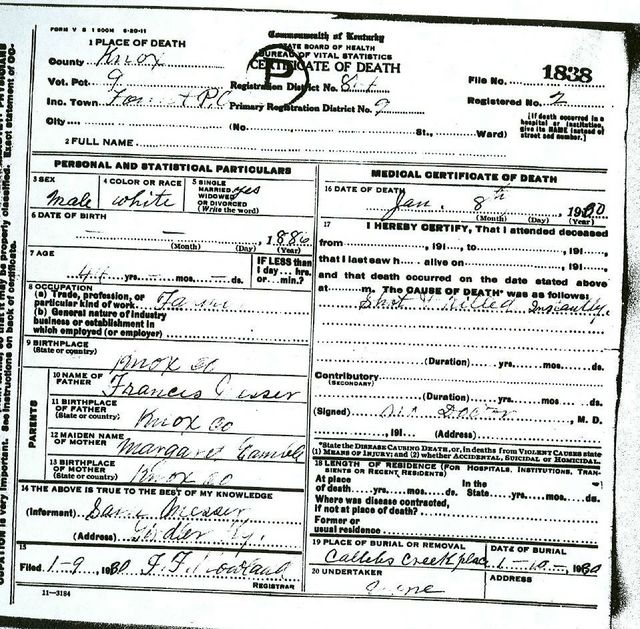 FORM V S 1 500M 6-20-11
Commonwealth of Kentucky
STATE BOARD OF HEALTH
BUREAU OF VITAL STATISTICS
CERTIFICATE OF DEATH
P
1 PLACE OF DEATH
County Knox
Vot. Pct. 9
Registration District No.
File No. 1838
Inc. Town
Primary Registration District No. 9
Registered No. 2
City (No. St., Ward)
[If death occurred in a hospital or institution, give its NAME instead of street and number.]
2 FULL NAME
PERSONAL AND STATISTICAL PARTICULARS
3 SEX
Male
4 COLOR OR RACE
White
5 SINGLE
MARRIED yes
WIDOWED
OR DIVORCED
(Write the word)
6 DATE OF BIRTH
— — , 1886
(Month) (Day) (Year)
7 AGE
44 yrs. — mos. — ds.
IF LESS than
1 day... hrs.
or... min.?
8 OCCUPATION
(a) Trade, profession, or
particular kind of work
(b) General nature of industry
business or establishment in
which employed (or employer)
9 BIRTHPLACE
(State or country)
Knox Co
PARENTS
10 NAME OF
FATHER
Francis
11 BIRTHPLACE
OF FATHER
(State or country)
Knox Co
12 MAIDEN NAME
OF MOTHER
Margaret Gambill
13 BIRTHPLACE
OF MOTHER
(State or country)
Knox Co
14 THE ABOVE IS TRUE TO THE BEST OF MY KNOWLEDGE
(Informent) Sam Messer
(Address) Girdler Ky.
15
Filed 1-9, 1930
REGISTRAR
11—3184
MEDICAL CERTIFICATE OF DEATH
16 DATE OF DEATH
Jan. 8th 1930
(Month) (Day) (Year)
17
I HEREBY CERTIFY, That I attended deceased
from , 191 , to , 191 ,
that I last saw h alive on , 191 ,
and that death occurred on the date stated above
at m. The CAUSE OF DEATH* was as follows:
Shot & Killed Instantly.
(Duration) yrs. mos. ds.
Contributory
(SECONDARY)
(Duration) yrs. mos. ds.
(Signed) No Doctor , M. D.
, 191 . (Address)
*State the DISEASE CAUSING DEATH, or, in deaths from VIOLENT CAUSES state
(1) MEANS OF INJURY; and (2) whether ACCIDENTAL, SUICIDAL or HOMICIDAL.
18 LENGTH OF RESIDENCE (FOR HOSPITALS, INSTITUTIONS, TRANSIENTS OR RECENT RESIDENTS)
At place of death yrs. mos. ds. In the State yrs. mos. ds.
Where was disease contracted,
if not at place of death?
Former or
usual residence
19 PLACE OF BURIAL OR REMOVAL
Creek place
DATE OF BURIAL
1-10-, 1930
20 UNDERTAKER
ADDRESS